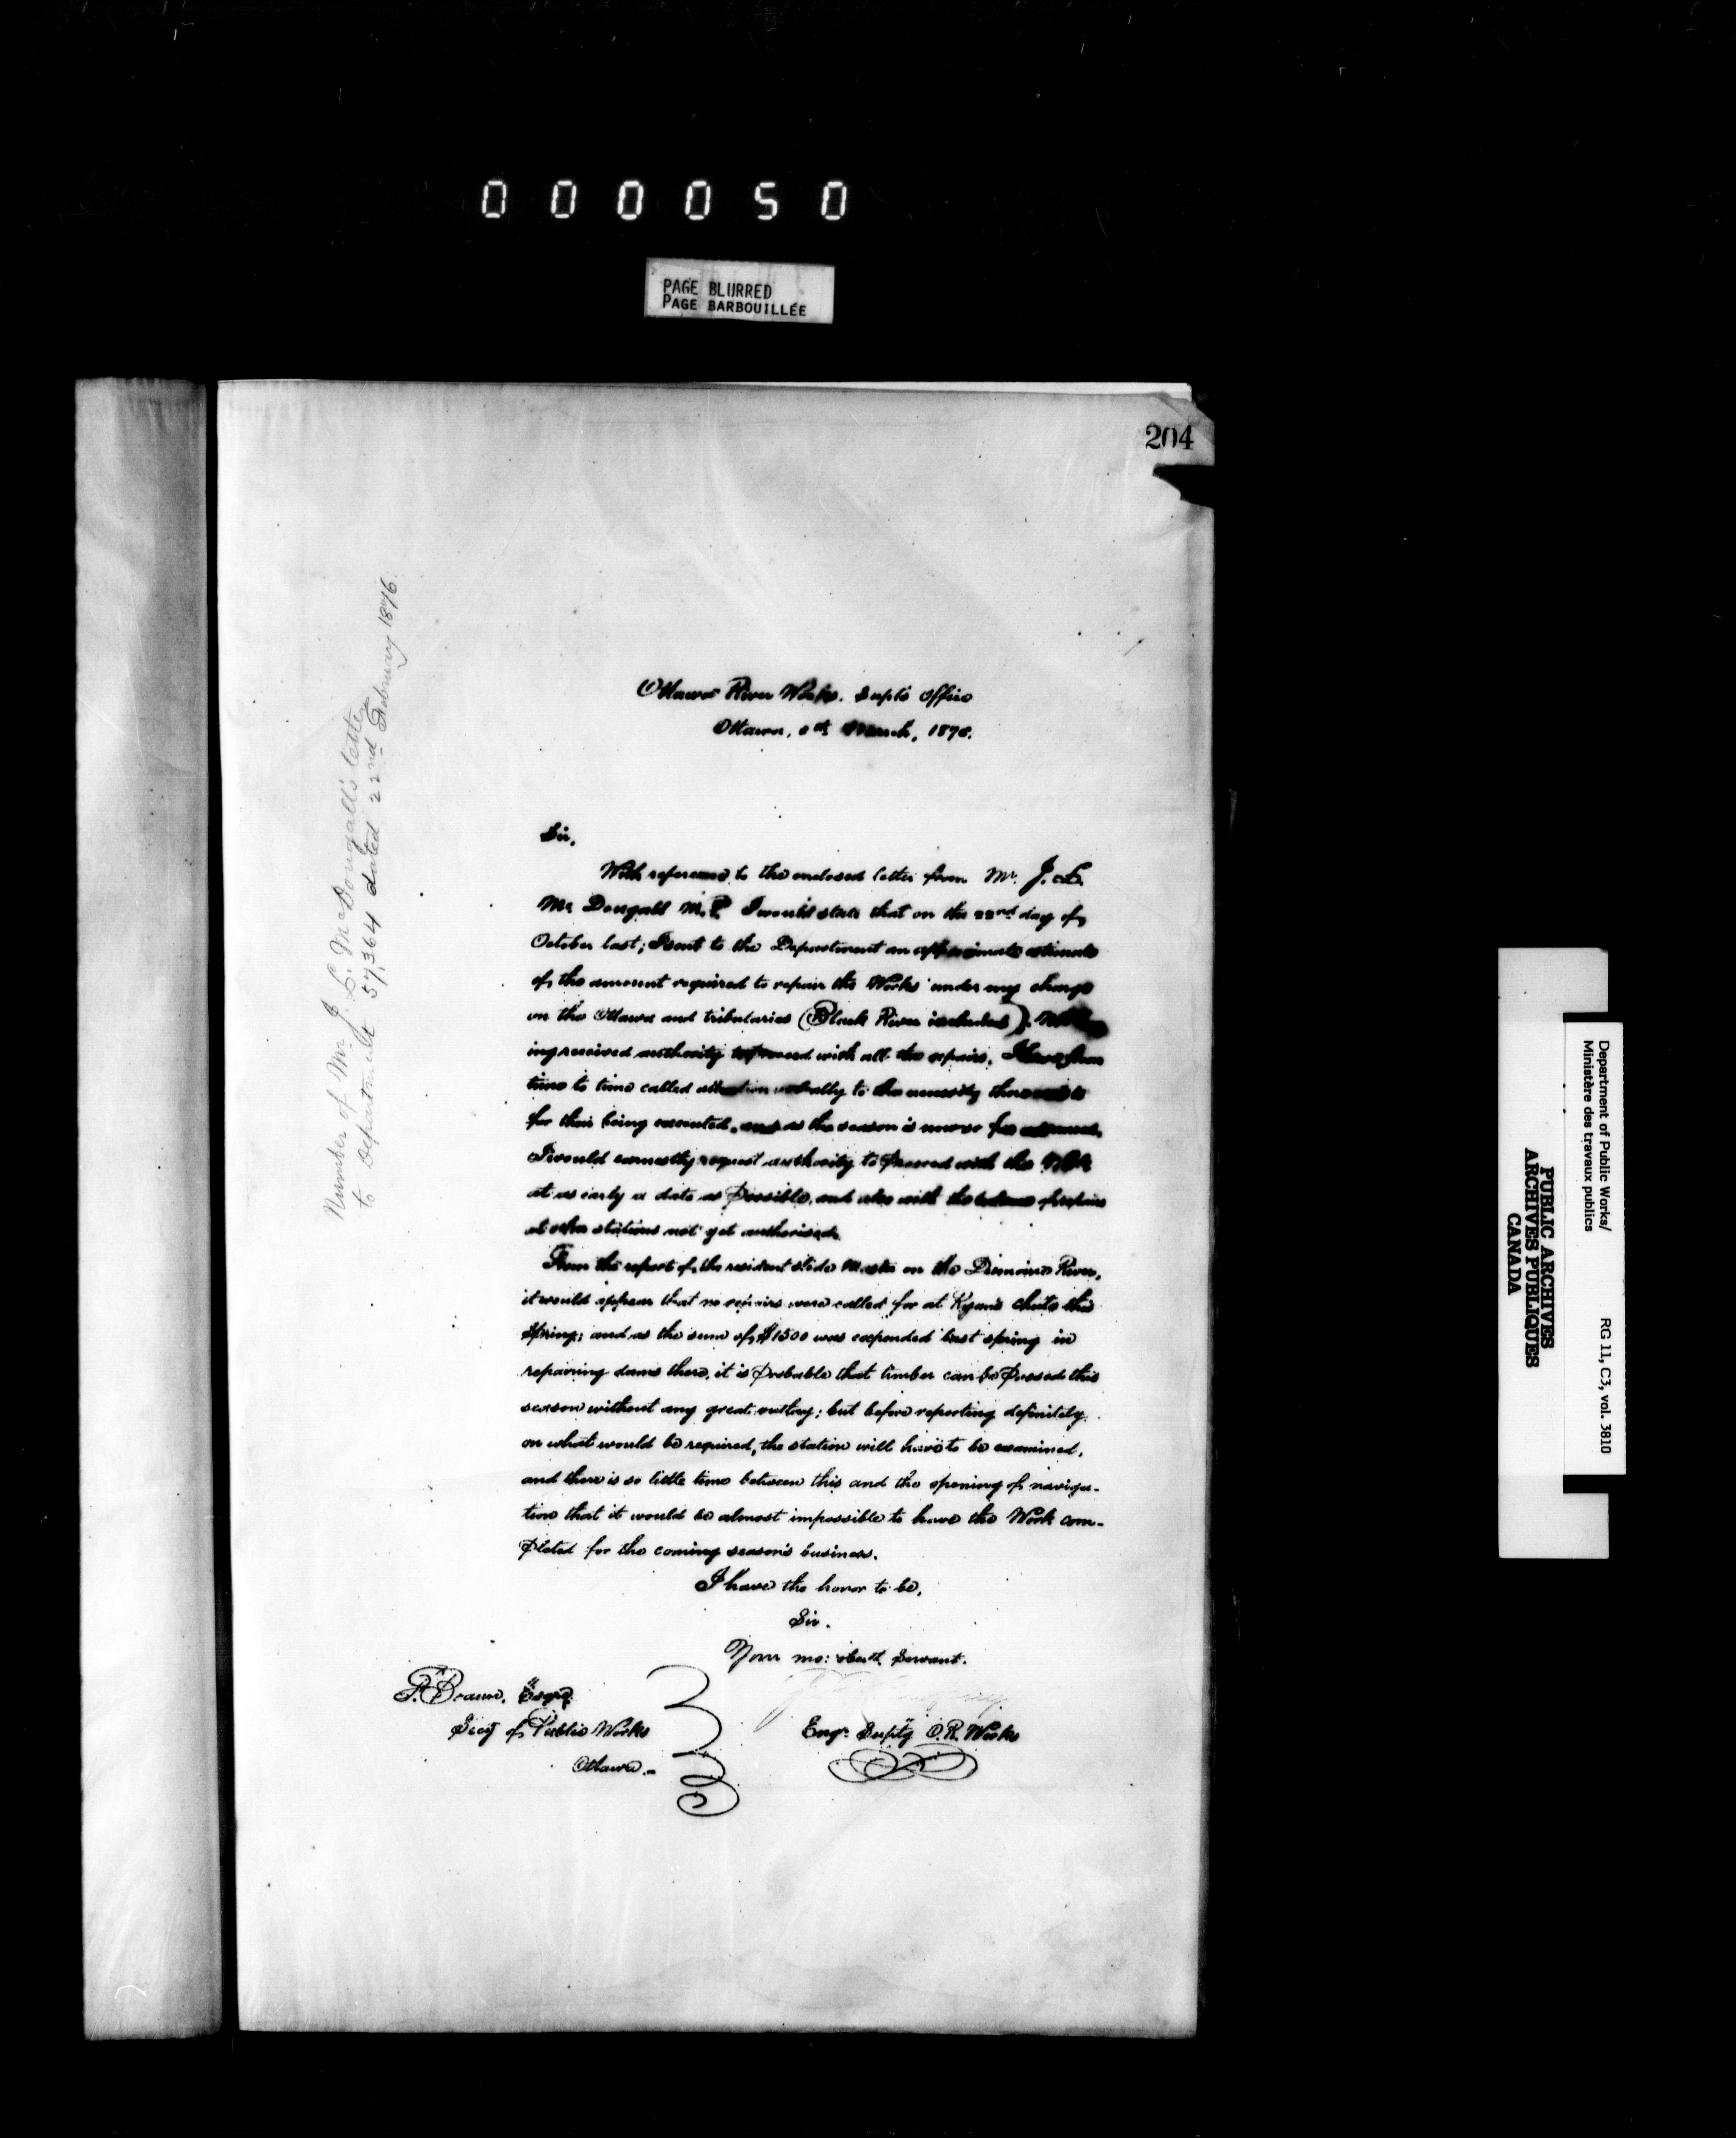 000050
PAGE BLURRED
PAGE BARBOUILLÉE
204
Number of Mr. J. L. McDougall's letter
to Department 57,364 dated 22nd February 1876.
Ottawa River Works. Supt's Office
Ottawa, March, 1876.
Sir,
With reference to the enclosed letter from Mr. J. L.
Mc Dougall M.P. I would state that on the 22nd day of
October last; I sent to the Department an approximate estimate
of the amount required to repair the Works under my charge
on the Ottawa and tributaries (Black River included).
ing received authority to proceed with all the repairs, I have from
time to time called attention verbally to the necessity there
for their being executed, and as the season is now so far advanced,
I would earnestly request authority to proceed with the
at as early a date as possible, and also with the repairs
at other stations not yet authorised.
From the report of the resident slide Master on the Dumoine River,
it would appear that no repairs were called for at Ryan's chute this
Spring; and as the sum of $1500 was expended last spring in
repairing dams there, it is probable that timber can be passed this
season without any great outlay; but before reporting definitely
on what would be required, the station will have to be examined,
and there is so little time between this and the opening of naviga-
tion that it would be almost impossible to have the Work com-
pleted for the coming season's business.
I have the honor to be,
Sir.
Your mo: obedt. Servant.
F. Braun, Esqre.
Secy of Public Works
Ottawa.-
Engr. Supts O.R. Works
Department of Public Works/
Ministère des travaux publics
RG 11, C3, vol. 3810
PUBLIC ARCHIVES
ARCHIVES PUBLIQUES
CANADA